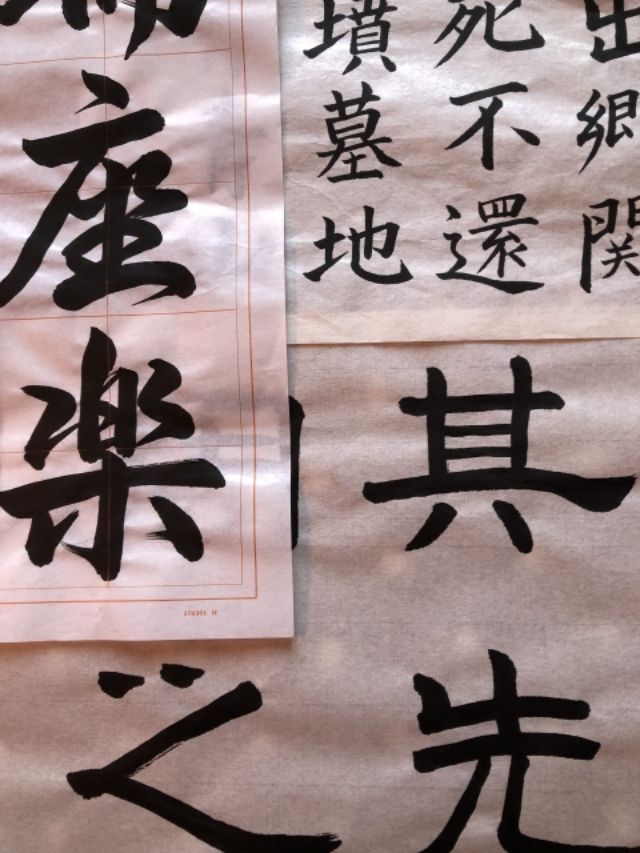 出郷関
死不還
墳墓地
座楽
其先
之